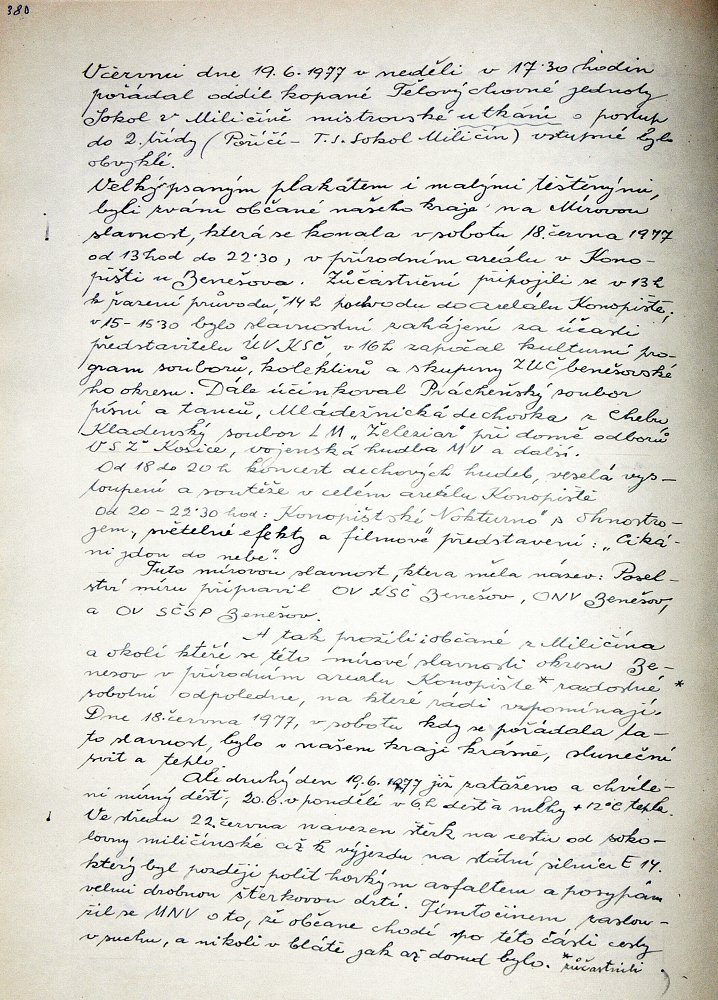 380
Včervnu dne 19.6.1977 v neděli v 17.30 hodin
pořádal oddíl kopané Tělovýchovné jednoty
Sokol v Miličíně mistrovské utkání o postup
do 2. třídy (Poříčí – T.J. Sokol Miličín) vstupné bylo
obvyklé.
Velkým psaným plakátem i malými tištěnými,
byli zváni občané našeho kraje na Mírovou
slavnost, která se konala v sobotu 18. června 1977
od 13 hod do 22.30, v přírodním areálu v Kono-
pišti u Benešova. Zůčastnění připojili se v 13 h
k řazení průvodu, 14 h pochodu do areálu Konopiště,
v 15-15.30 bylo slavnostní zahájení za účasti
představitelu ÚV KSČ, v 16 h započal kulturní pro-
gram souborů, kolektivů a skupiny ZUČ benešovské
ho okresu. Dále účinkoval Prácheňský soubor
písní a tanců, Mládežnická dechovka z Chebu,
Kladenský soubor LM „Železiar" při domě odborů
VSŽ Košice, vojenská hudba MV a další.
Od 18 do 20 h koncert dechových hudeb, veselá vys-
toupení a soutěže v celém areálu Konopiště
Od 20 – 22.30 hod: Konopištské Nokturno" s ohnostro-
jem, světelné efekty a filmové představení: „Ciká-
ni jdou do nebe".
Tuto mírovou slavnost, ktera měla název: Posel-
ství míru připravil OV KSČ Benešov, ONV Benešov,
a OV SČSP Benešov.
A tak prožili i občané z Miličína
a okolí kteří se této mírové slavnosti okresu Be-
nešov v přírodním areálu Konopiště * radostné *
sobotní odpoledne, na které rádi vzpomínají.
Dne 18. června 1977, v sobotu kdy se pořádala ta-
to slavnost, bylo v našem kraji krásně, sluneční
svit a teplo.
Ale druhý den 19.6.1977 již zataženo a chvíle-
mi mírný déšť, 20.6. v pondělí v 6 h déšť a mlhy +12°C tepla.
Ve středu 22. června navezen štěrk na cestu od soko-
lovny miličínské až k výjezdu na státní silnici E 14.
který byl později polit horkým asfaltem a posypán
velmi drobnou štěrkovou drtí. Tímto činem zaslou-
žil se MNV o to, že občane chodí po této části cesty
v suchu, a nikoli v blátě jak až dosud bylo. * zůčastnili